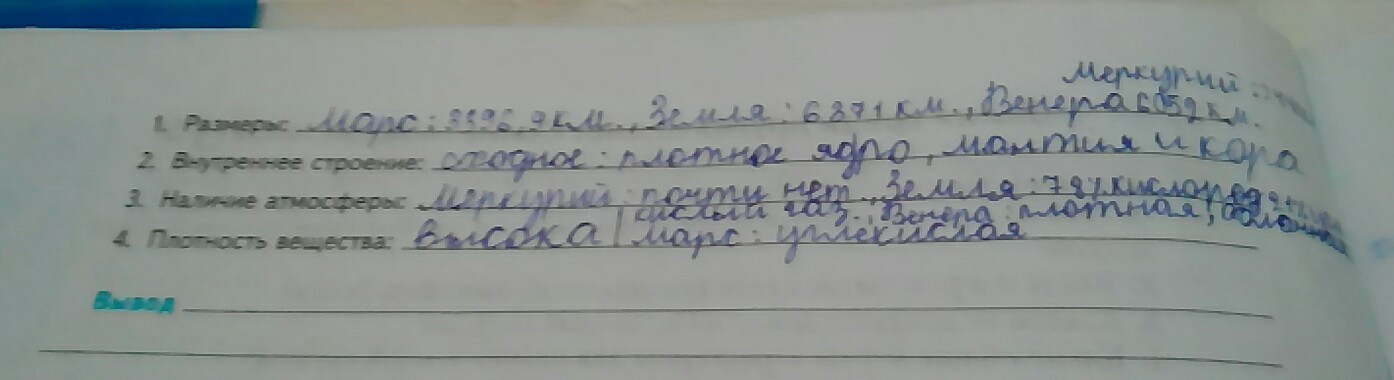 Меркурий
1. Размеры: Марс: 3396,9 км., Земля: 6371 км., Венера 6052 км.
2. Внутреннее строение: сходное: плотное ядро, мантия и кора
3. Наличие атмосферы: Меркурий: почти нет, Земля: 78% кислород
кислый газ., Венера: плотная,
4. Плотность вещества: высока | Марс: углекислая
Вывод